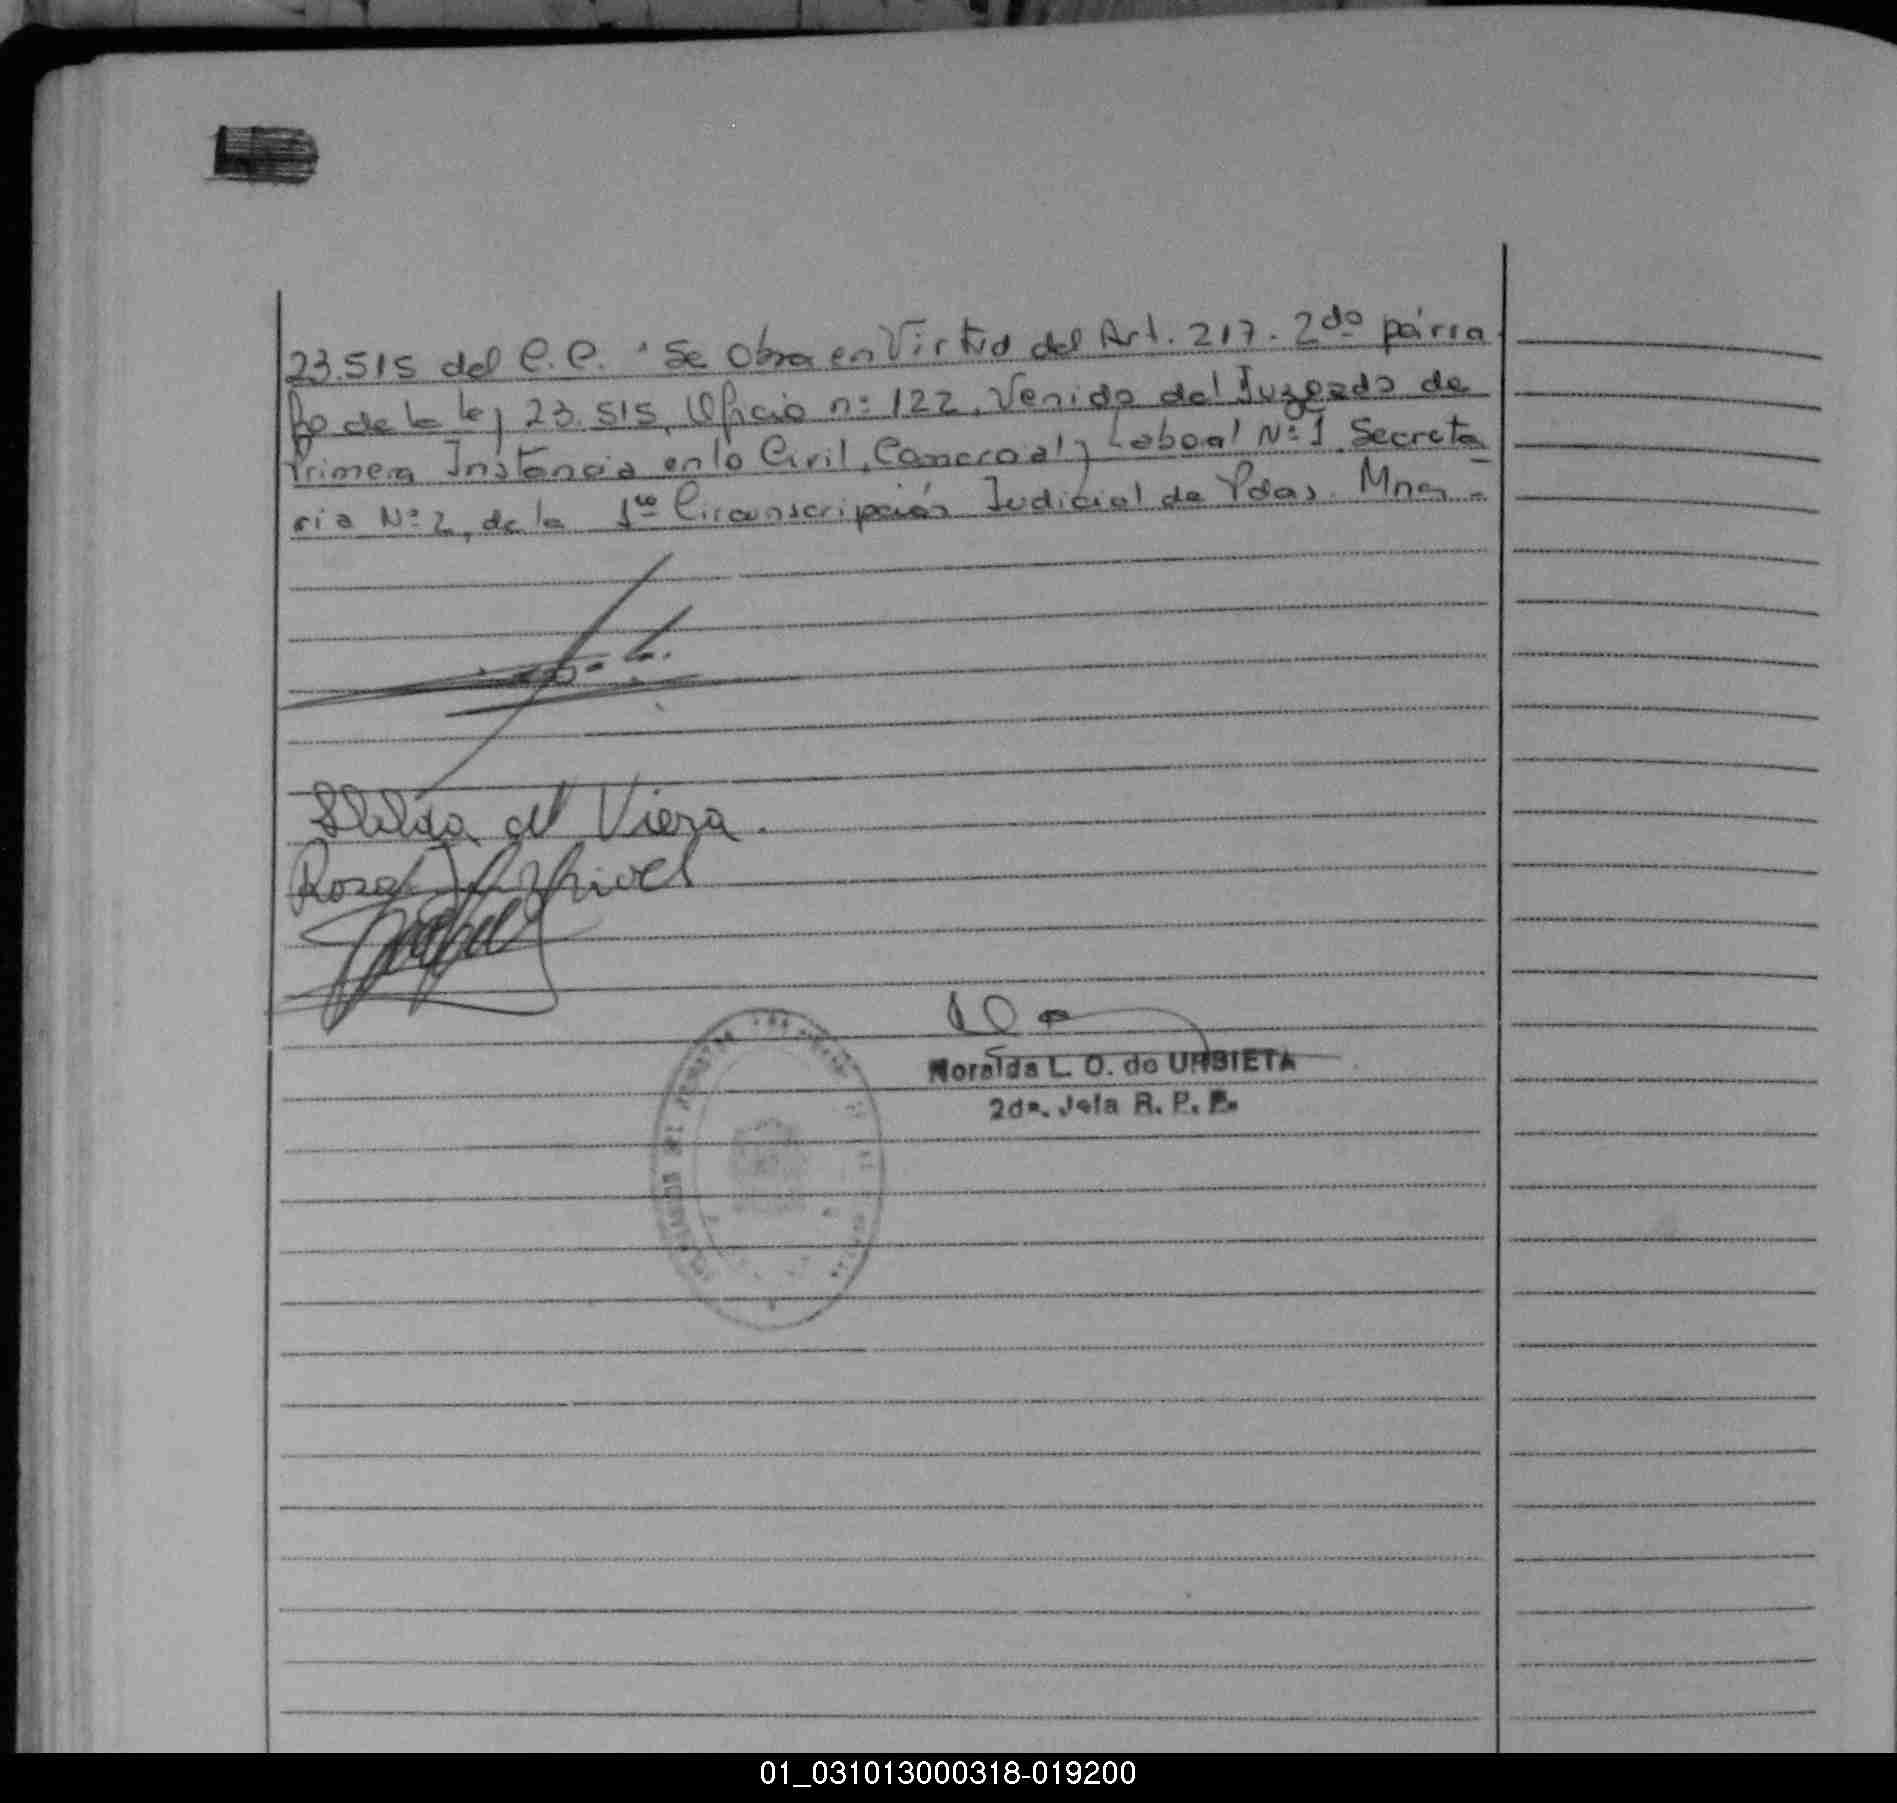 23.515 del C.C. "Se Obra en Virtud del Art. 217. 2do párra
fo de la ley 23.515, Oficio n: 122, Venido del Juzgado de
Primera Instancia en lo Civil, Comercial y Laboral Nº 1. Secreta
ria Nº 2, de la 1ra Circunscripción Judicial de Pdas. Mnes -
de Viera.
Rosa
Noralda L. O. de URBIETA
2da. Jefa R. P. P.
01_031013000318-019200